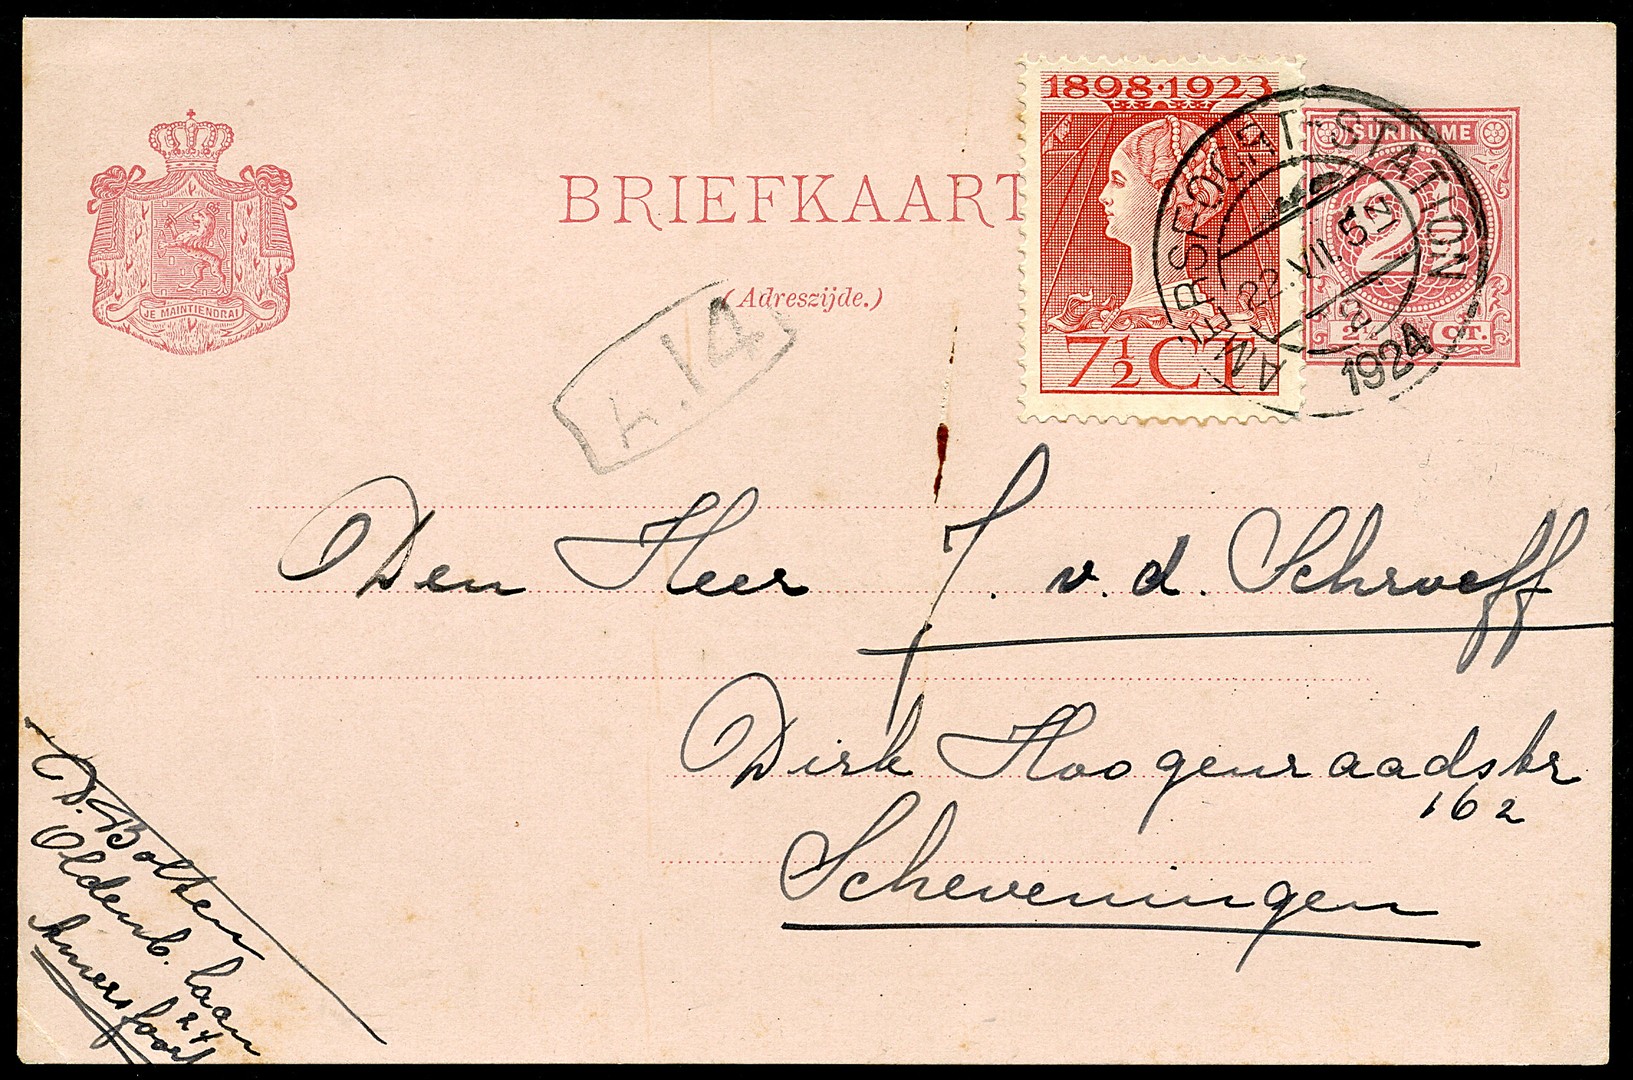 1898·1923
SURINAME
JE MAINTIENDRAI
BRIEFKAART
(Adreszijde.)
7½ CT
2½ CT.
AMERSFOORT-STATION
22.VII.5N
1924
A.14
Den Heer J. v. d. Schroeff
Dirk Hoogenraadstr
162
Scheveningen
D. Bolten
Oldenb. laan
24
Amersfoort